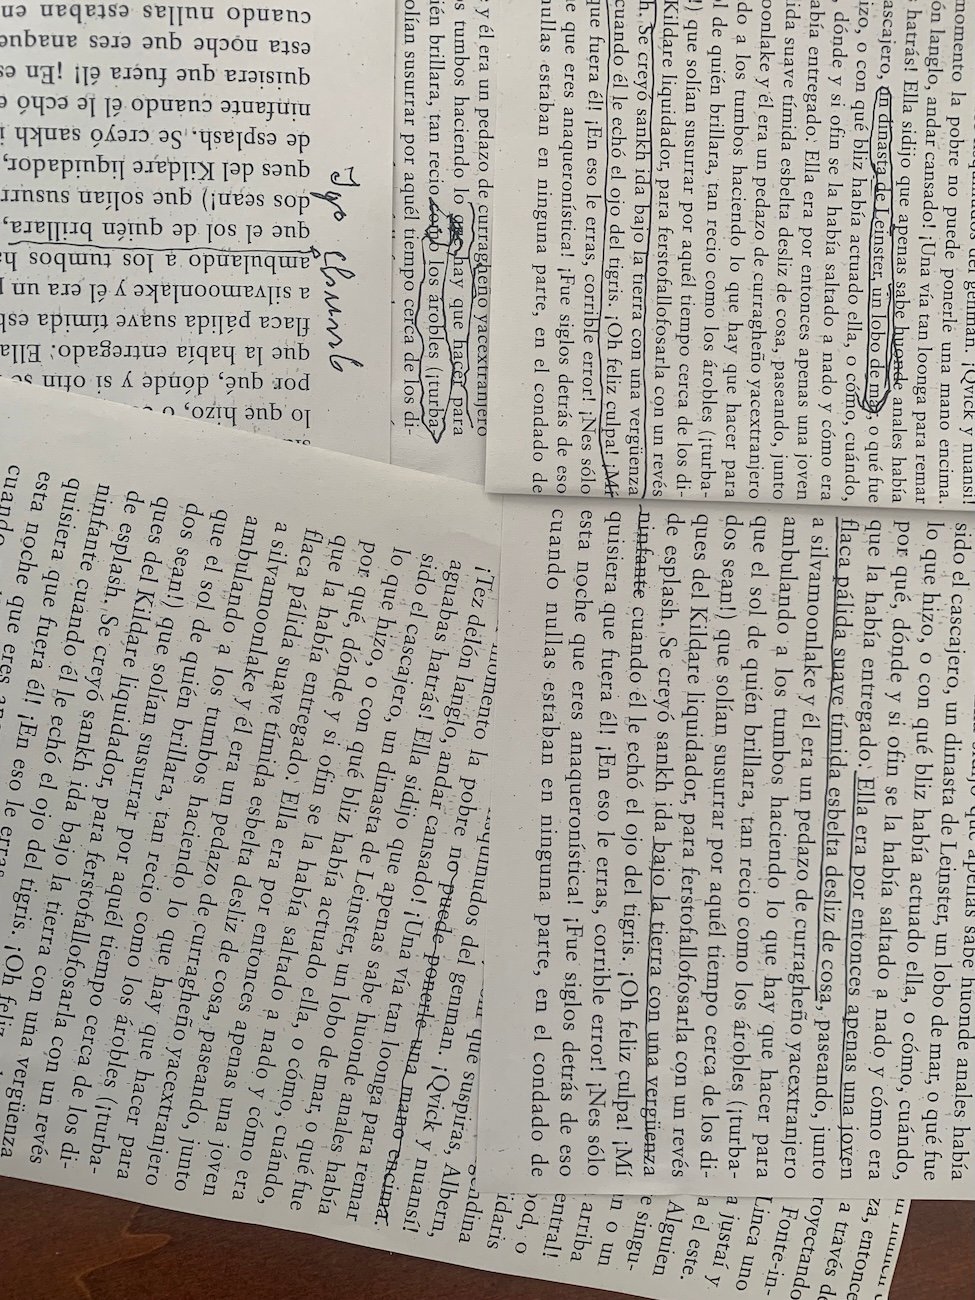 cuando nullas estaban en
esta noche que eres anaque
quisiera que fuera él! ¡En es
ninfante cuando él le echó e
de esplash. Se creyó sankh i
ques del Kildare liquidador,
dos sean!) que solían susurr
que el sol de quién brillara,
ambulando a los tumbos ha
a silvamoonlake y él era un p
flaca pálida suave tímida esb
que la había entregado: Ella
por qué, dónde y si ofin se
lo que hizo, o
e y él era un pedazo de curragheño yacextranjero
os tumbos haciendo lo que hay que hacer para
ién brillara, tan recio como los árobles (¡turba-
olían susurrar por aquél tiempo cerca de los di-
momento la pobre no puede ponerle una mano encima.
ón langlo, andar cansado! ¡Una vía tan loonga para remar
s hatrás! Ella sidijo que apenas sabe huonde anales había
ascajero, un dinasta de Leinster, un lobo de mar, o qué fue
izo, o con qué bliz había actuado ella, o cómo, cuándo,
, dónde y si ofin se la había saltado a nado y cómo era
abía entregado. Ella era por entonces apenas una joven
ida suave tímida esbelta desliz de cosa, paseando, junto
oonlake y él era un pedazo de curragheño yacextranjero
do a los tumbos haciendo lo que hay que hacer para
l de quién brillara, tan recio como los árobles (¡turba-
!) que solían susurrar por aquél tiempo cerca de los di-
Kildare liquidador, para ferstofallofosarla con un revés
h. Se creyó sankh ida bajo la tierra con una vergüenza
cuando él le echó el ojo del tigris. ¡Oh feliz culpa! ¡Mí
que fuera él! ¡En eso le erras, corrible error! ¡Nes sólo
e que eres anaqueronística! ¡Fue siglos detrás de eso
nullas estaban en ninguna parte, en el condado de
sido el cascajero, un dinasta de Leinster, un lobo de mar, o qué fue
lo que hizo, o con qué bliz había actuado ella, o cómo, cuándo,
por qué, dónde y si ofin se la había saltado a nado y cómo era
que la había entregado. Ella era por entonces apenas una joven
flaca pálida suave tímida esbelta desliz de cosa, paseando, junto
a silvamoonlake y él era un pedazo de curragheño yacextranjero
ambulando a los tumbos haciendo lo que hay que hacer para
que el sol de quién brillara, tan recio como los árobles (¡turba-
dos sean!) que solían susurrar por aquél tiempo cerca de los di-
ques del Kildare liquidador, para ferstofallofosarla con un revés
de esplash. Se creyó sankh ida bajo la tierra con una vergüenza
ninfante cuando él le echó el ojo del tigris. ¡Oh feliz culpa! ¡Mí
quisiera que fuera él! ¡En eso le erras, corrible error! ¡Nes sólo
esta noche que eres anaqueronística! ¡Fue siglos detrás de eso
cuando nullas estaban en ninguna parte, en el condado de
que suspiras, Albern,
momento la pobre no puede ponerle una mano encima.
¡Tez delón langlo, andar cansado! ¡Una vía tan loonga para remar
aguabas hatrás! Ella sidijo que apenas sabe huonde anales había
sido el cascajero, un dinasta de Leinster, un lobo de mar, o qué fue
lo que hizo, o con qué bliz había actuado ella, o cómo, cuándo,
por qué, dónde y si ofin se la había saltado a nado y cómo era
que la había entregado. Ella era por entonces apenas una joven
flaca pálida suave tímida esbelta desliz de cosa, paseando, junto
a silvamoonlake y él era un pedazo de curragheño yacextranjero
ambulando a los tumbos haciendo lo que hay que hacer para
que el sol de quién brillara, tan recio como los árobles (¡turba-
dos sean!) que solían susurrar por aquél tiempo cerca de los di-
ques del Kildare liquidador, para ferstofallofosarla con un revés
de esplash. Se creyó sankh ida bajo la tierra con una vergüenza
ninfante cuando él le echó el ojo del tigris. ¡Oh feliz
quisiera que fuera él! ¡En eso le erras
esta noche que eres
cuando
za, entonce
a través de
royectando
Fonte-in-
Linca uno
a justaí y
a el este.
Alguien
e singu-
n o un
arriba
entral!